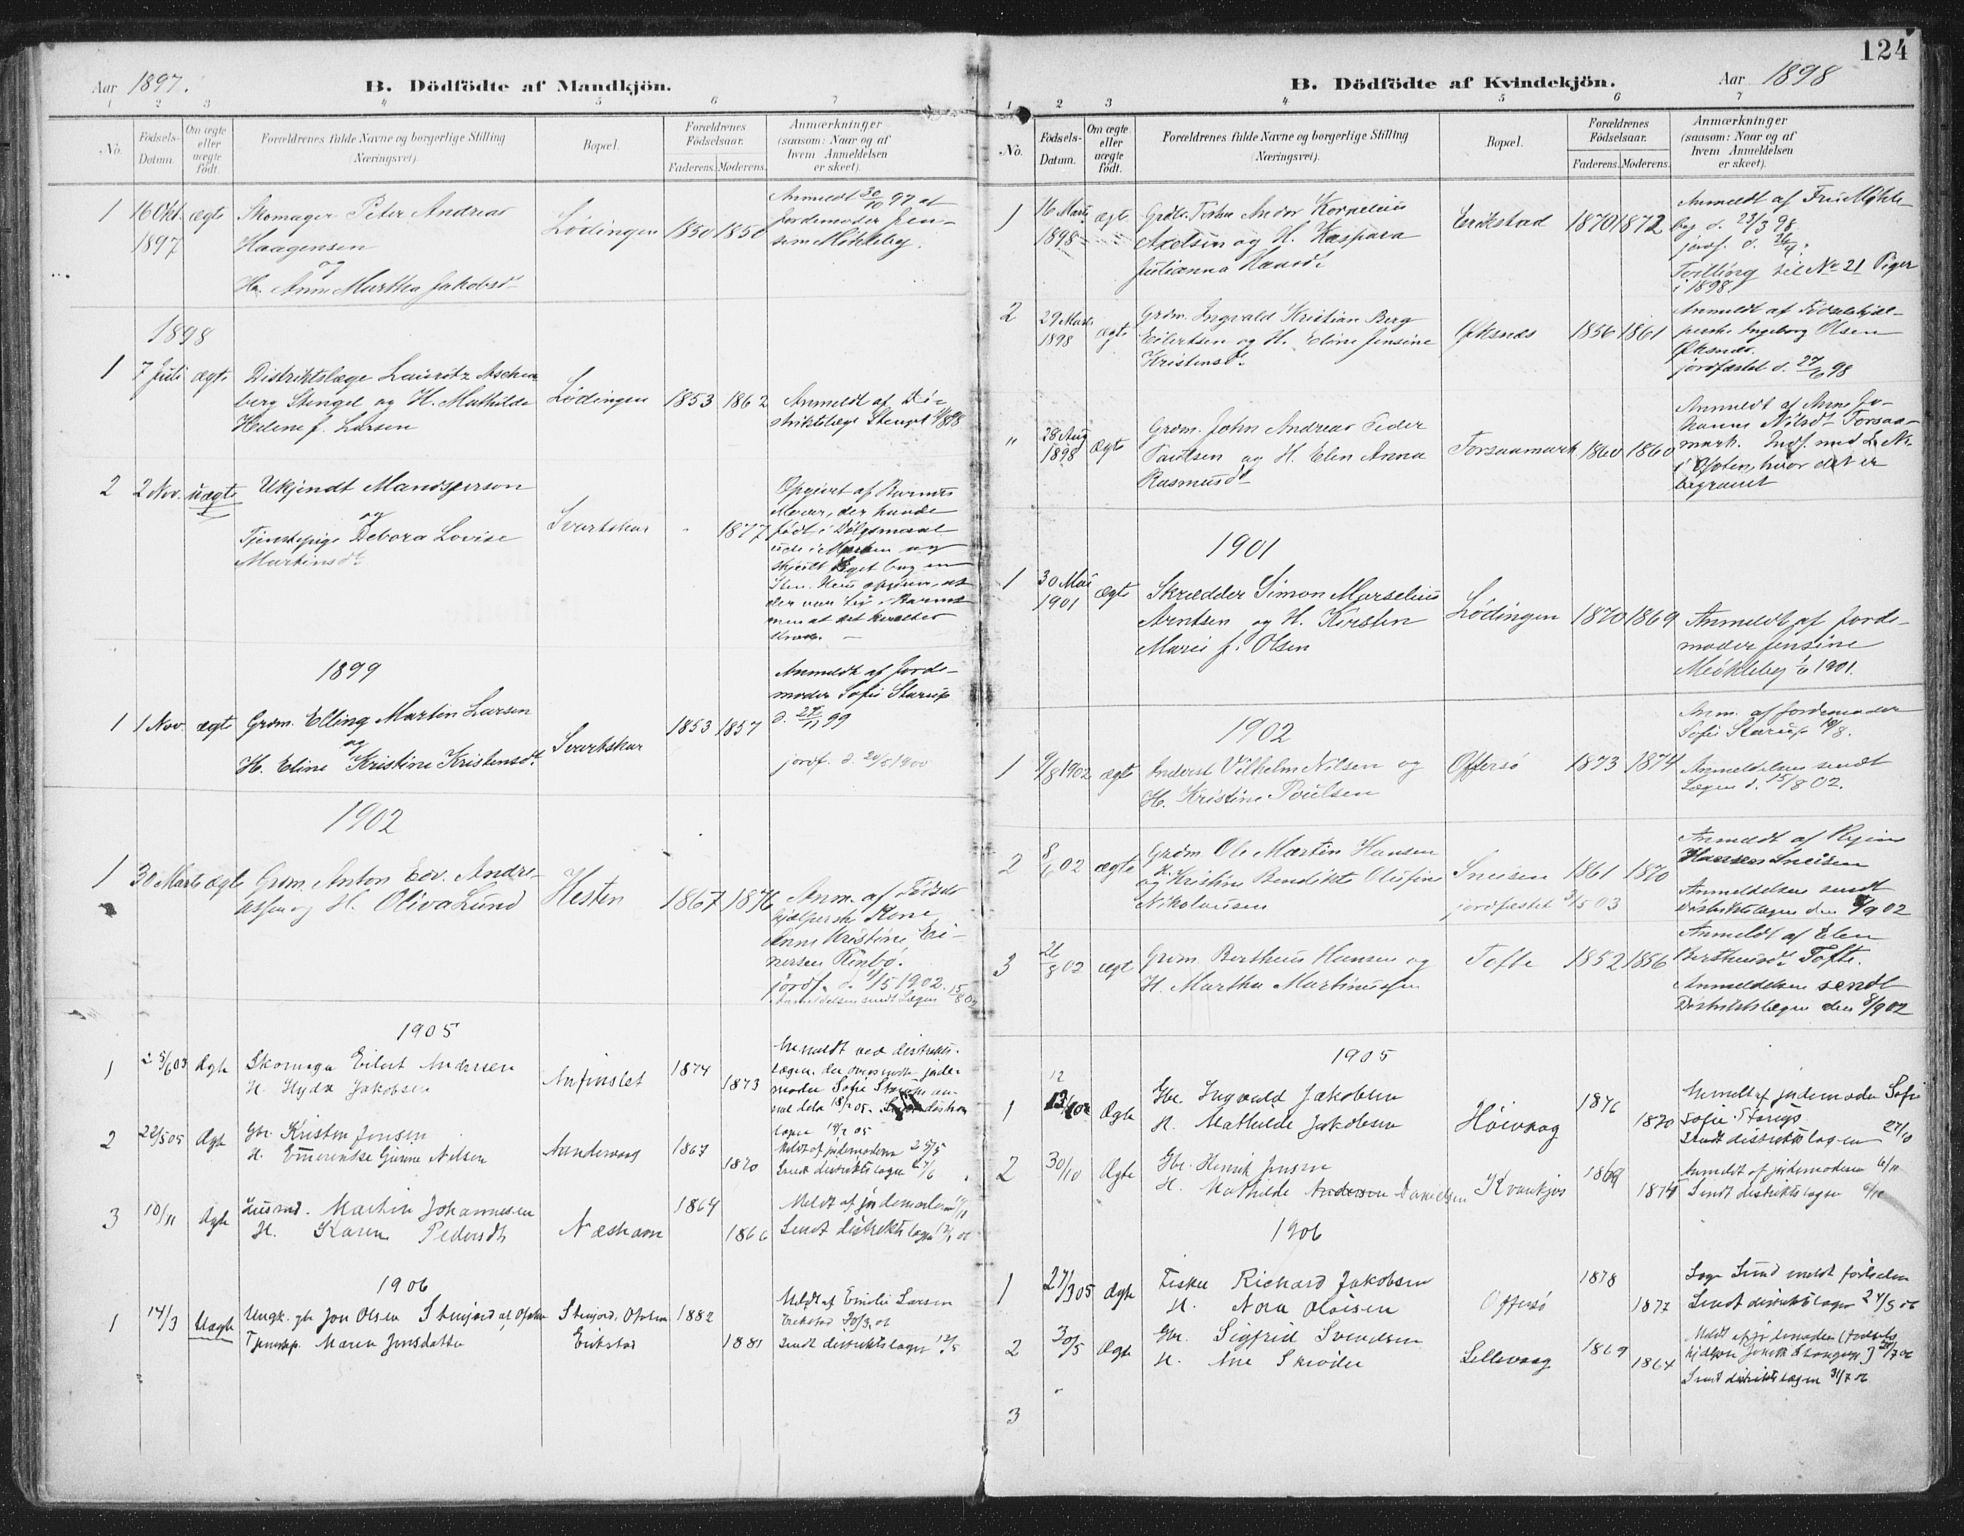 Aar 1897. B. Dödfödte af Mandkjön.
1 2 3 4 5 6 7
No.
Födsels-
Datum.
Om ægte
eller
uægte
födt.
Forældrenes fulde Navne og borgerlige Stilling
(Næringsvei).
Bopæl.
Forældrenes
Födselsaar.
Faderens. Moderens.
Anmærkninger
(saasom: Naar og af
hvem Anmeldelsen
er skeet).
1 16 Okt. ægte Skomager Peter Andreas Lødingen 1850 1850
1897 Haagensen
og
H. Anne Martha Jakobsd.
Anmeldt 30/10 97 af
Jordemoder Jen-
sine Mökleby.
1898
1 7 Juli ægte Distriktslæge Lauritz Aschen- Lødingen 1853 1862
berg Stengel og H. Mathilde
Helene f. Larsen
Anmeldt af Di-
striktslæge Stengel
2 2 Nov. uægte Ukjendt Mandsperson
og
Tjenestepige Debora Lovise Svartskar - 1877
Martinsdt
Opgivet af Barnets
Moder, der havde
født i Dølgsmaal
ude i Marken og
skjult Liget bag en
Sten. Hun opgiver, at
der var Liv i Barnet
men at det kvaltes
strax. -
1899
1 1 Nov. ægte Grdm. Elling Martin Larsen Svartskar 1853 1857
og
H. Eline Kristine Kristensdt.
Anmeldt af Jorde-
moder Sofie Starup
d. 27/11 99
jordf. d. 20/5 1900
1902
1 30 Marts ægte Grdm. Anton Edv. Andre- Hesten 1867 1876
assen og H. Oliva Lund
Anm. af Fødsels-
hjælperske Kone
Anne Kristine Ei-
nersen Rinbø.
jordf. d. 11/5 1902.
Anmeldelsen sendt Lægen 15/8 02
1905
1 25/6 03 Ægte Skomager Eilert Andersen Anfinslet 1874
H. Hyda Jakobsen 1873
Anmeldt ved distrikts-
lægen
moder Sofie Starup
2 22/5 05 Ægte Gbr. Kristen Jensen Sandevaag 1867
H. Emerentse Gurine Nilsen 1870
Meldt af jordemoderen 25/5
Sendt distriktslægen 27/6
3 10/11 Ægte Husmd. Martin Johannessen 1864
H. Karen Pedersdt Næshavn 1866
Meldt af jordemoderen
Sendt distriktslægen
1906
1 14/3 Uægte Ungk. gbr Jon Olsen Stenjord af Ofoten Stenjord, Ofoten 1882
Tjenestep. Maren Jensdatter Erikstad 1881
Meldt af Emilie Larsen
Erikstad 30/3 06
Sendt distriktslægen 12/5
124
B. Dödfödte af Kvindekjön. Aar 1898
1 2 3 4 5 6 7
No.
Födsels-
Datum.
Om ægte
eller
uægte
födt.
Forældrenes fulde Navne og borgerlige Stilling
(Næringsvei).
Bopæl.
Forældrenes
Födselsaar.
Faderens. Moderens.
Anmærkninger
(saasom: Naar og af
hvem Anmeldelsen
er skeet).
1 16 Marts ægte Andor Kornelius Erikstad 1870 1872
1898 Axelsen og H. Kaspara
Julianna Hansdt
Anmeldt af Fru Mökle-
by d. 23/3 98
jordf. d.
Tvilling til No 21 Piger
i 1898.
2 29 Marts ægte Grdm. Ingvald Kristian Berg Øksnes 1856 1861
1898 Eilertsen og H. Eline Jensine
Kristensdt.
Anmeldt af Fødselshjæl-
perske Ingeborg Olsen
Øksnes.
jordfæstet d. 27/6 98
" 28 Aug ægte Grdm. John Andreas Peder Forsaamark 1860 1860
1898 Paulsen og H. Elen Anna
Rasmusdt
Anmeldt af Anne Jo-
hanna Nilsdt Forsaa-
mark. Indf. med L. No
i Ofoten, hvor det er
begravet
1901
1 30 Mai ægte Skrædder Simon Marselius Lødingen 1870 1869
1901 Arntsen og H. Kirsten
Marie f. Olsen
Anmeldt af Jorde-
moder Jensine
Mökleby 1/6 1901.
1902
1 9/8 1902 ægte Anderst Vilhelm Nilsen og Offersø 1873 1874
H. Kristine Poulsen
Anm. af Jordemoder
Sofie Starup 10/8.
Anmeldelsen sendt
Lægen d. 15/8 02.
2 8/6 02 ægte Grdm Ole Martin Hansen Sneisen 1861 1870
og H. Kristine Bendikte Olufine
Nikolaisen jordfæstet 3/5 03
Anmeldt af
Hansen Sneisen
Anmeldelsen sendt
Distriktslægen den 8/9 02
3 26/8 02 ægte Grdm. Berthus Hansen og Tofte 1852 1856
H. Martha Martinussen
Anmeldt af Elen
Berthusdt. Tofte.
Anmeldelsen sendt
Distriktslægen den 8/9 02
1905
1 Ægte Gbr. Ingvald Jakobsen Höivaag 1876
H. Mathilde Jakobsen 1870
Anmeldt af jordemoder Sofie
Sofie Starup
Sendt distriktslægen 27/10
2 30/10 Ægte Gbr. Henrik Jensen Kvankjos 1869
H. Mathilde Andersen Danielsen 1874
Anmeldt af jordemoderen 6/11
Sendt distriktslægen
1906
1 27/3 05 Ægte Fisker Richard Jakobsen 1878
H. Nora Olaisen Offersø 1877
Læge Lund meldt fødselen
Sendt distriktslægen 24/5 06
2 30/5 Ægte Gbr. Sigfrid Svendsen Lillevaag 1869
H. Ane Skröder 1864
Meldt af jordemoder
Sendt distriktslægen 31/7 06
3